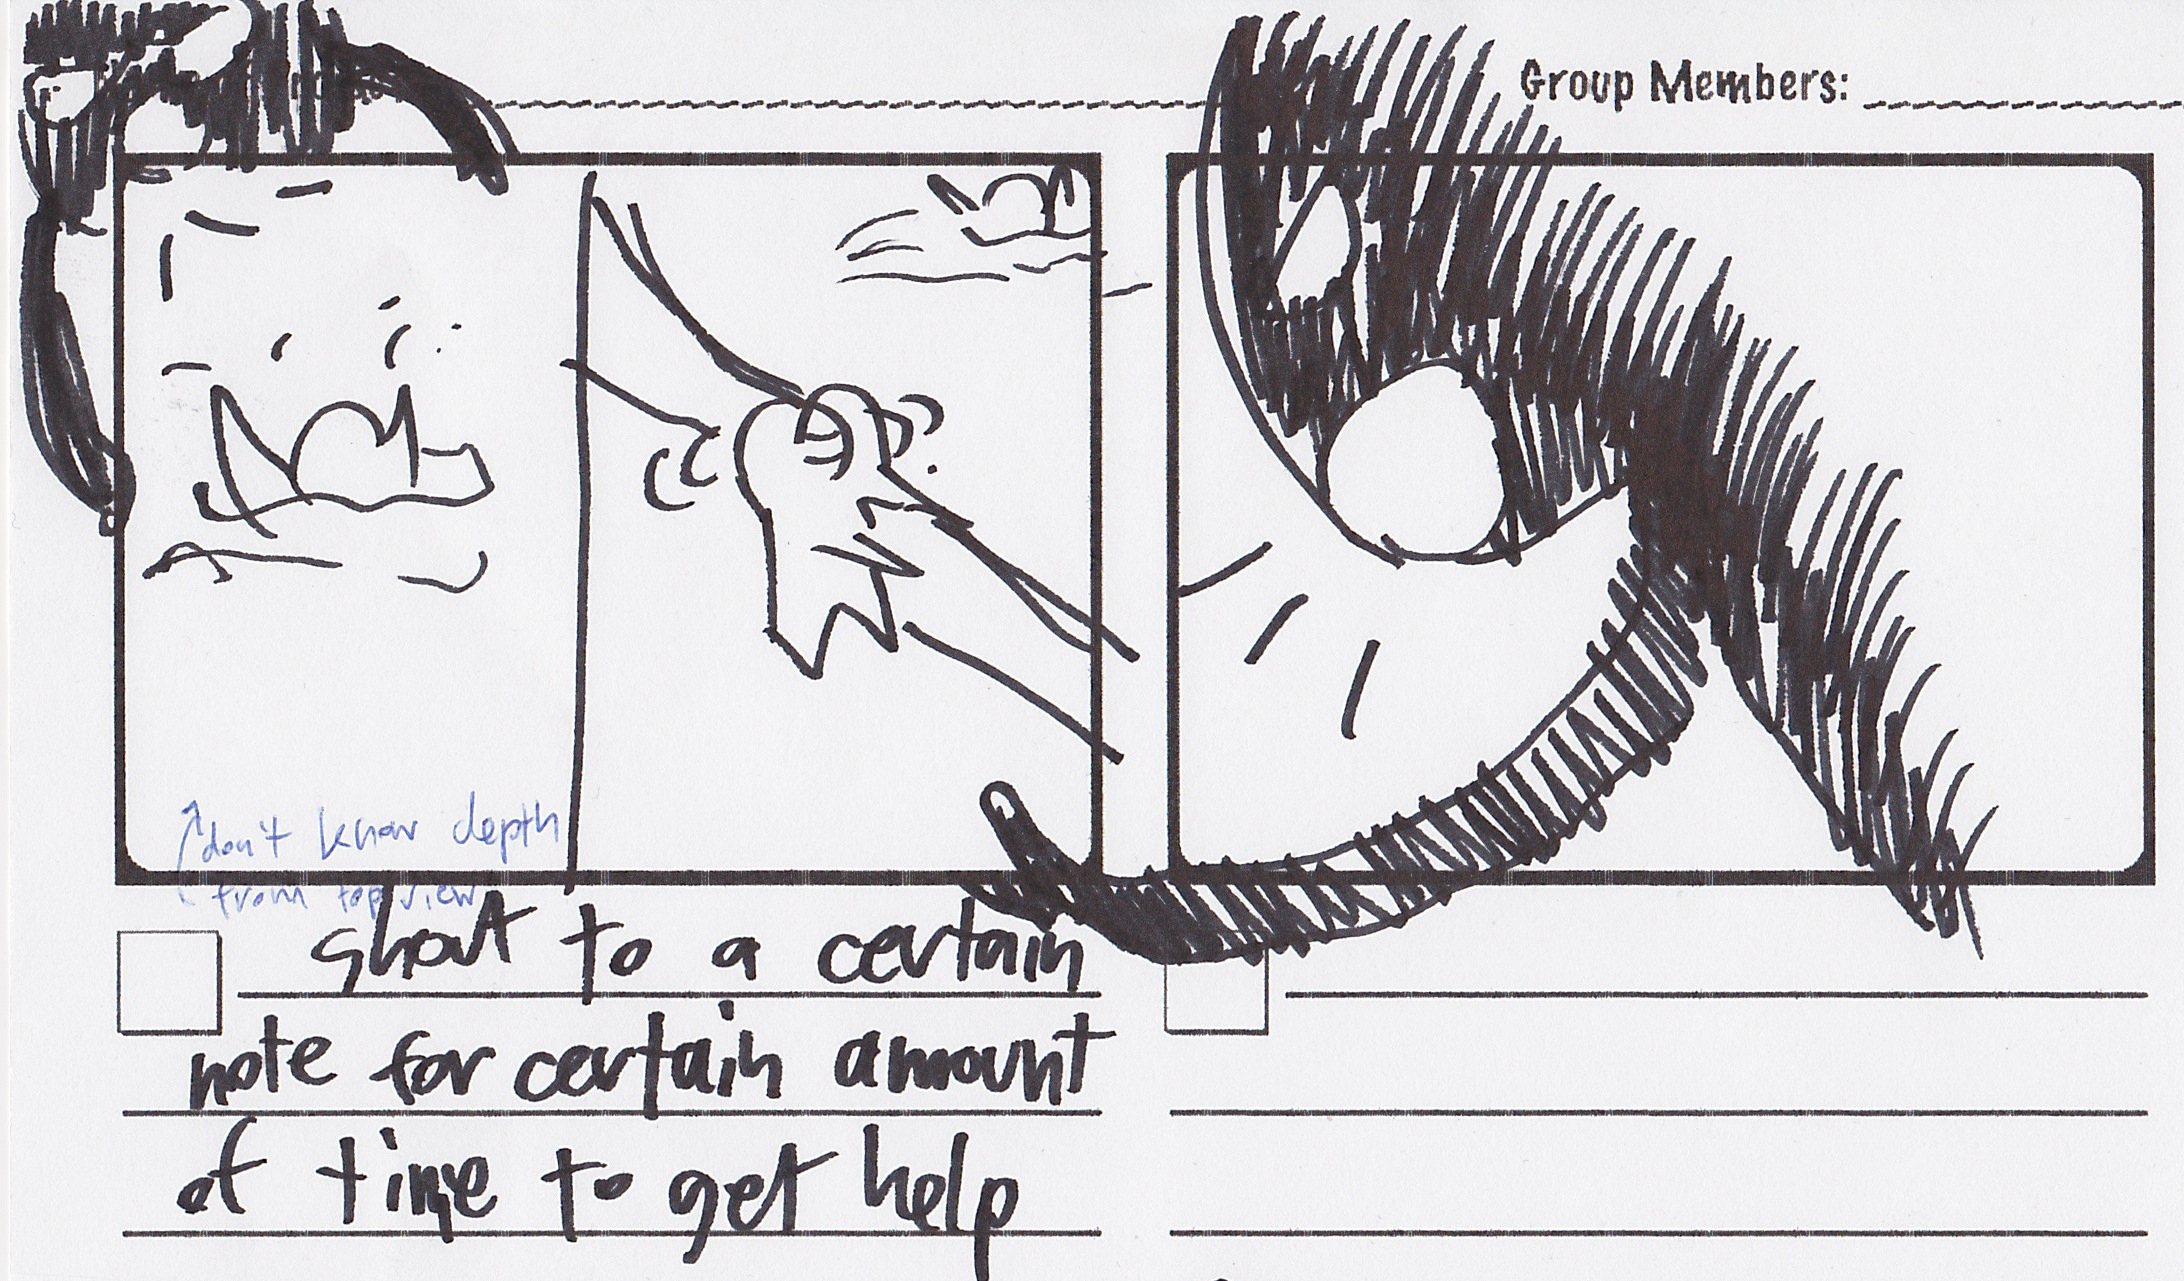 Group Members:
don't know depth
from top view
shout to a certain
note for certain amount
of time to get help